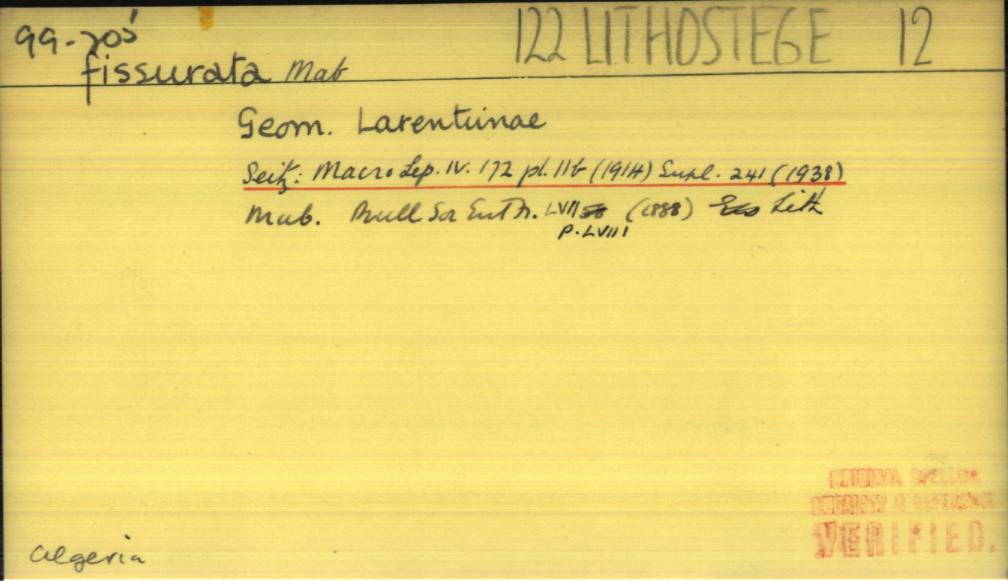 99-705 122 LITHOSTEGE 12
fissurata Mab
Geom. Larentiinae
Seitz: Macro Lep. IV. 172 pl. 11b (1914) Supl. 241 (1938)
Mab. Bull Soc Ent Fr. LVII (1888) Lith
P. LVIII
ORIGINAL SPELLING
LOCALITY & REFERENCE
VERIFIED.
Algeria